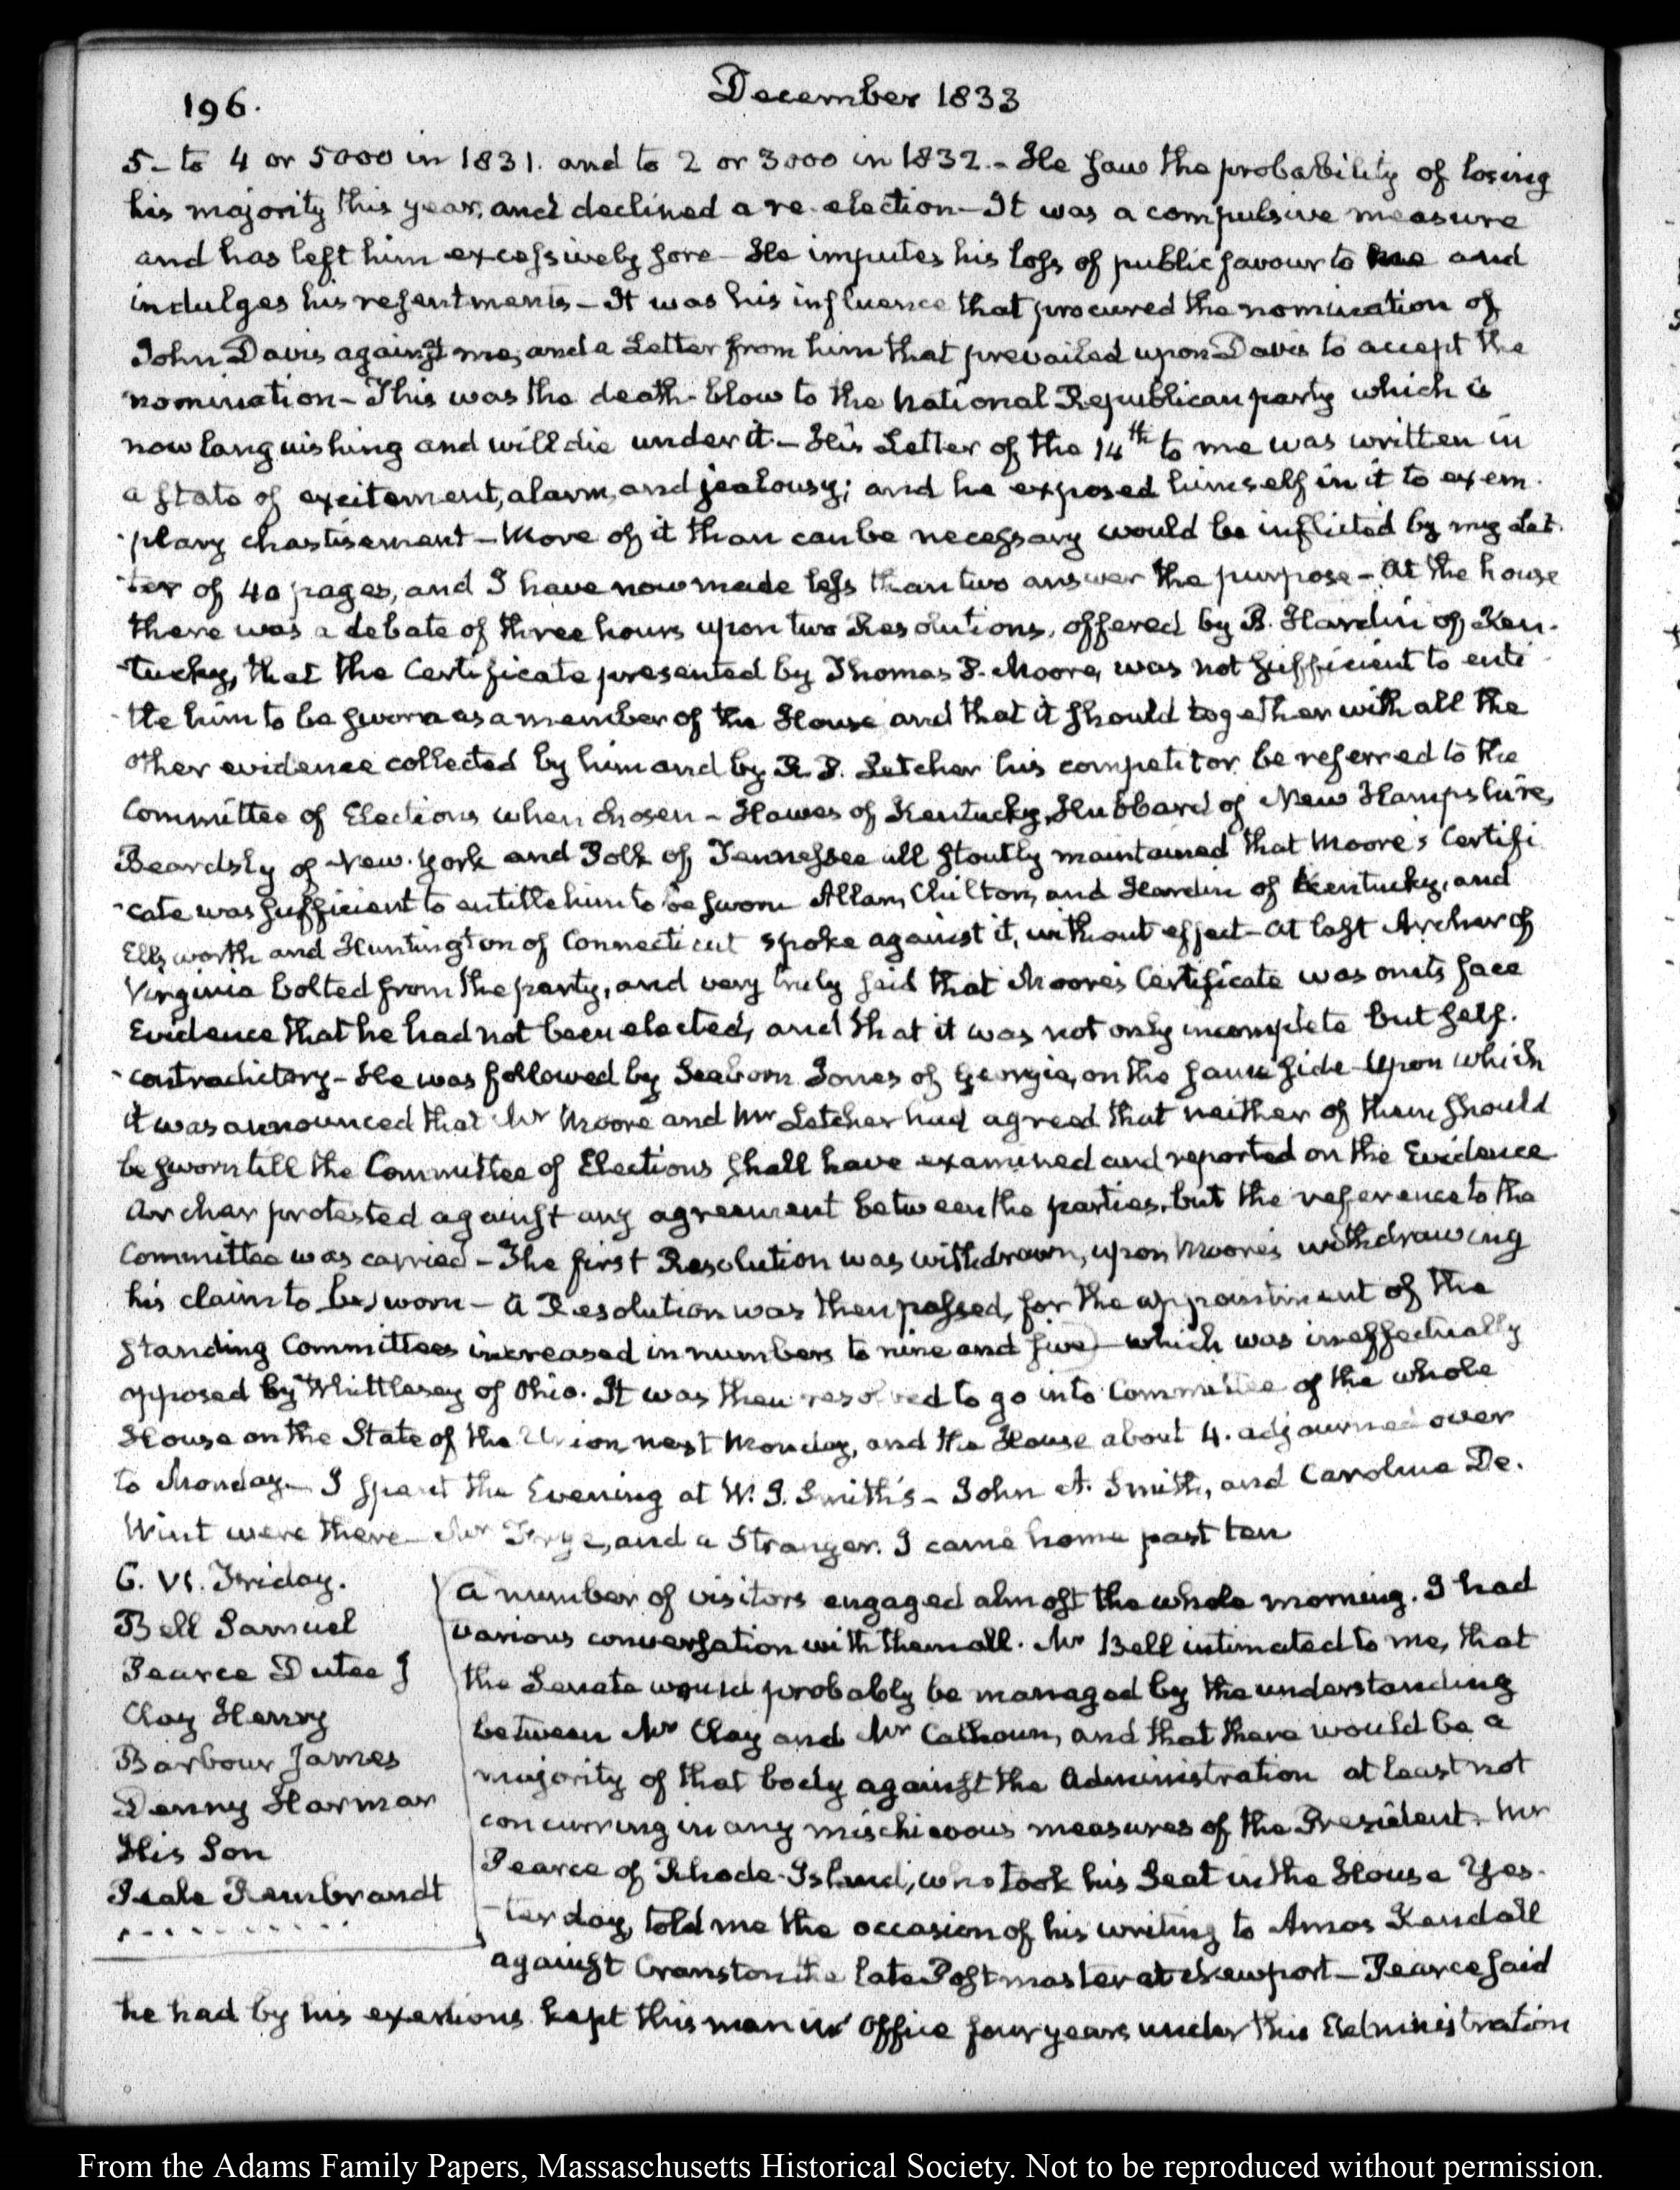 196.
December 1833
5- to 4 or 5000 in 1831. and to 2 or 3000 in 1832.- He saw the probability of losing
his majority this year, and declined a re-election- It was a compulsive measure
and has left him excessively sore- He imputes his loss of public favour to me and
indulges his resentments- It was his influence that procured the nomination of
John Davis against me, and a Letter from him that prevailed upon Davis to accept the
nomination- This was the death-blow to the National Republican party which is
now languishing and will die under it.- His Letter of the 14th to me was written in
a state of excitement, alarm, and jealousy; and he exposed himself in it to exem-
-plary chastisement- More of it than can be necessary would be inflicted by my Let-
-ter of 40 pages, and I have now made less than two answer the purpose- At the house
there was a debate of three hours upon two Resolutions, offered by B. Hardin of Ken-
-tucky, that the Certificate presented by Thomas P. Moore, was not sufficient to enti-
-tle him to be sworn as a member of the House and that it should together with all the
other evidence collected by him and by R. P. Letcher his competitor be referred to the
Committee of Elections when chosen- Hawes of Kentucky, Hubbard of New Hampshire,
Beardsly of New-York and Polk of Tennessee all stoutly maintained that Moore's Certifi
-cate was sufficient to entitle him to be sworn Allan, Chilton, and Hardin of Kentucky, and
Ellsworth and Huntington of Connecticut spoke against it, without effect- At last Archer of
Virginia bolted from the party, and very truly said that Moore's Certificate was on its face
Evidence that he had not been elected, and that it was not only incomplete but self-
-contradictory- He was followed by Seaborn Jones of Georgia, on the same side- Upon which
it was announced that Mr Moore and Mr Letcher had agreed that neither of them should
be sworn till the Committee of Elections shall have examined and reported on the Evidence
Archer protested against any agreement between the parties, but the reference to the
Committee was carried- The first Resolution was withdrawn, upon Moore's withdrawing
his claim to be sworn- A Resolution was then passed, for the appointment of the
standing Committees increased in numbers to nine and five- which was ineffectually
opposed by Whittlesey of Ohio. It was then resolved to go into Committee of the whole
House on the State of the Union next Monday, and the House about 4. adjourned over
to Monday- I spent the Evening at W. S. Smith's- John A. Smith, and Caroline De-
Wint were there- Mr Frye, and a Stranger. I came home past ten
6. VI. Friday.
Bell Samuel
Pearce Dutee J
Clay Henry
Barbour James
Denny Harmar
His Son
Peale Rembrandt
A number of visitors engaged almost the whole morning. I had
various conversation with them all. Mr Bell intimated to me, that
the Senate would probably be managed by the understanding
between Mr Clay and Mr Calhoun, and that there would be a
majority of that body against the Administration at least not
concurring in any mischievous measures of the President. Mr
Pearce of Rhode-Island, who took his Seat in the House Yes-
-terday, told me the occasion of his writing to Amos Kendall
against Cranston the late Postmaster at Newport- Pearce said
he had by his exertions kept this man in Office four years under this Administration
From the Adams Family Papers, Massachusetts Historical Society. Not to be reproduced without permission.